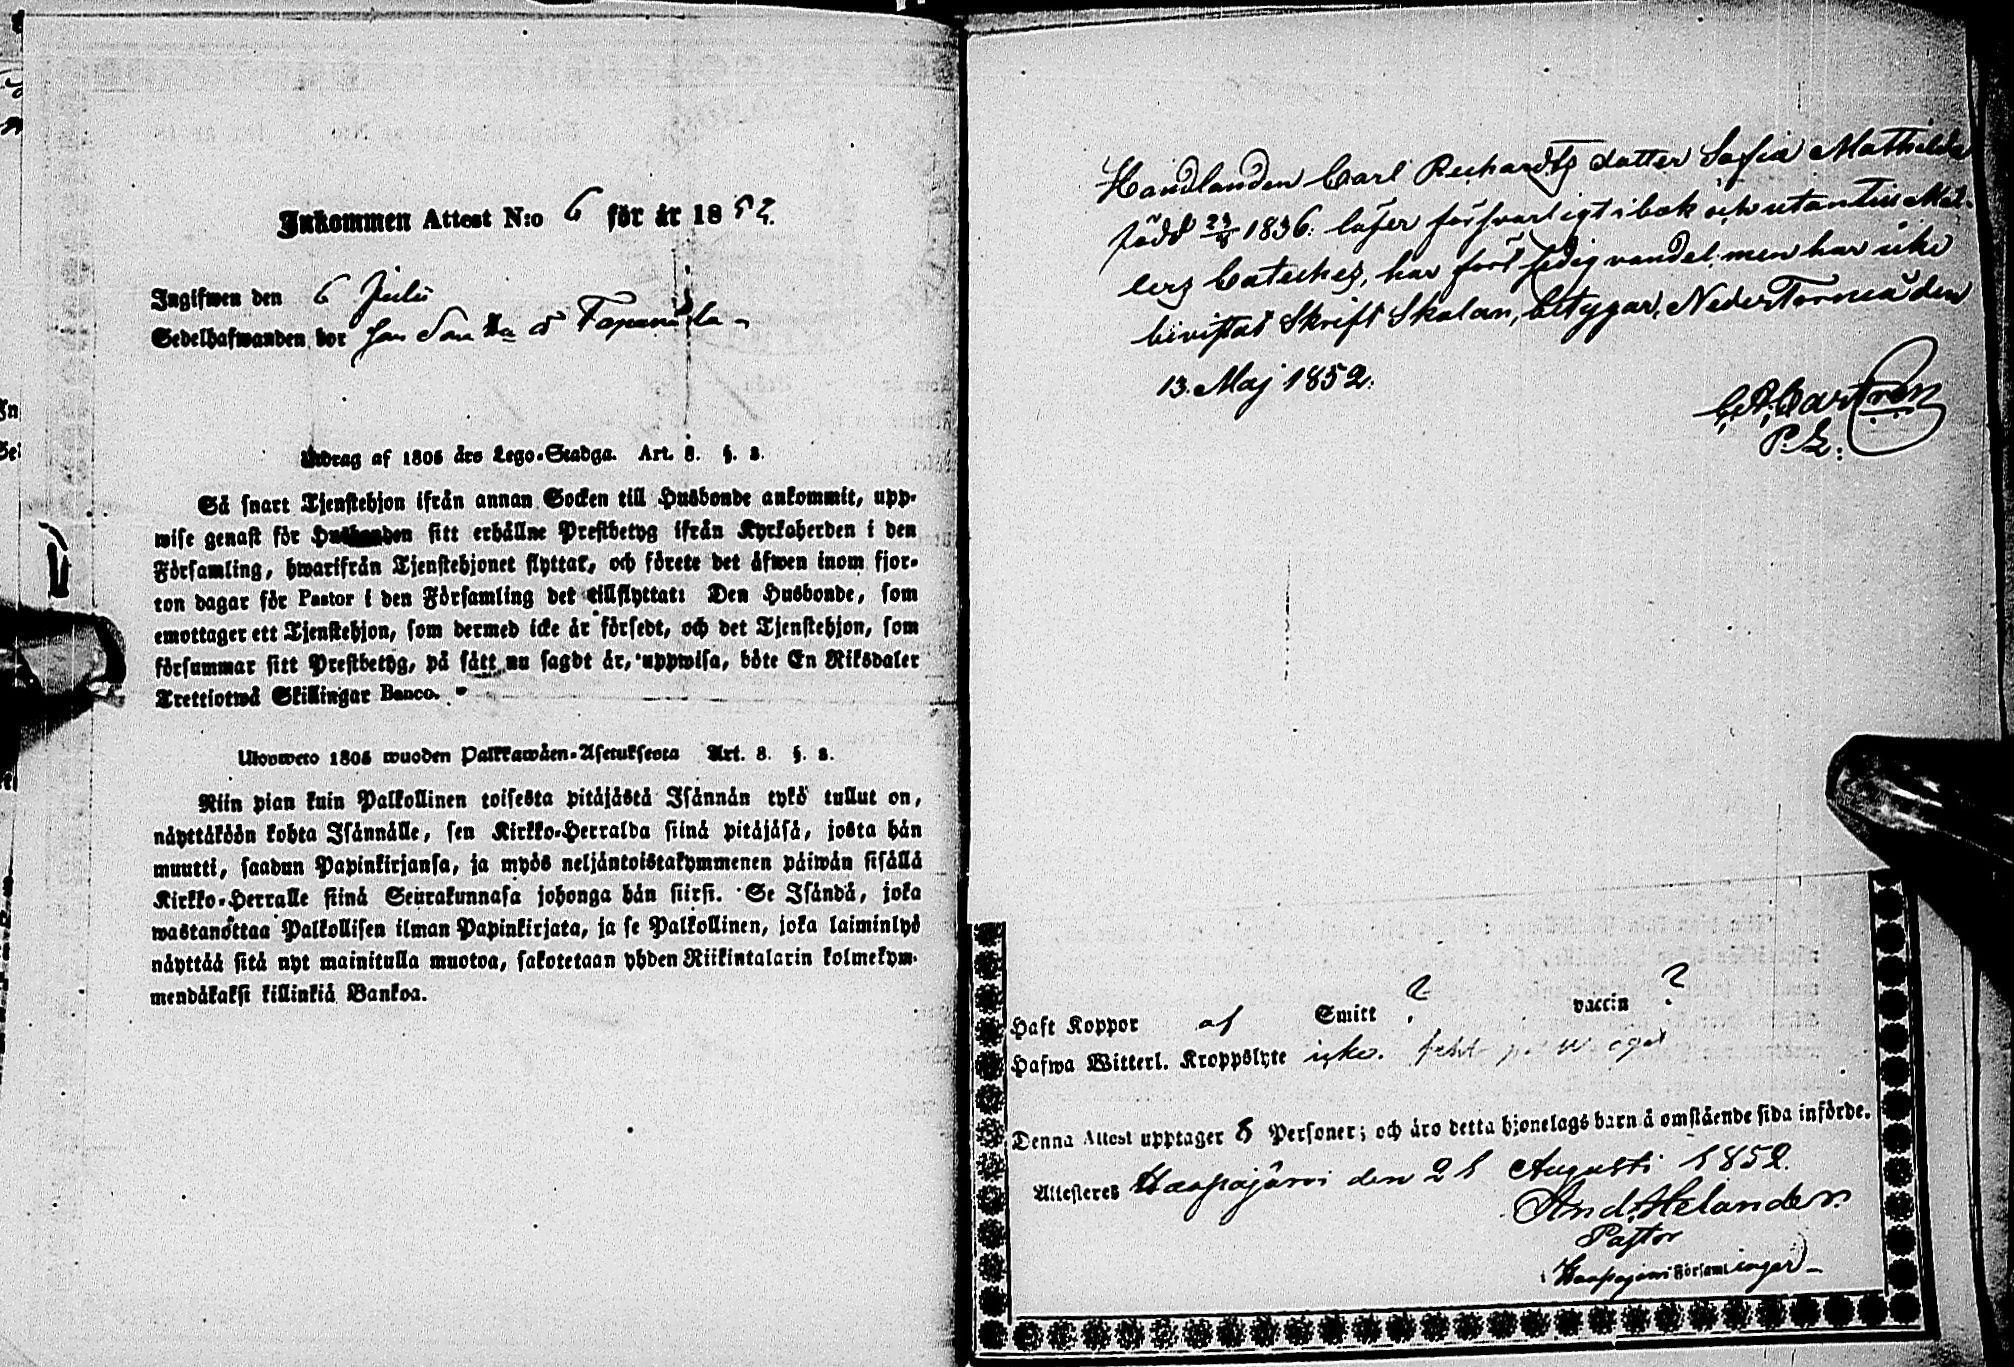 Inkommen Attest N:o 6 för år 1852.
Ingifwen den 6 Julii
Sedelhafwanden bor
Utdrag af 1805 års Lego-Stadga. Art. 8. §. 8.
Så snart Tjenstehjon ifrån annan Socken till Husbonde ankommit, upp-
wise genast för Husbonden sitt erhållne Prestbetyg ifrån Kyrkoherden i den
Församling, hwarifrån Tjenstehjonet flyttat, och förete det äfwen inom fjor-
ton dagar för Pastor i den Församling det tillflyttat: Den Husbonde, som
emottager ett Tjenstehjon, som dermed icke är försedt, och det Tjenstehjon, som
försummar sitt Prestbetyg, på sätt nu sagdt är, uppwisa, böte En Riksdaler
Trettiotwå Skillingar Banco.
Ulosweto 1805 wuoden Palkkawäen-Asetuksesta Art. 8. §. 8.
Niin pian kuin Palkollinen toisesta pitäjästä Isännän tykö tullut on,
näyttäköön kohta Isännälle, sen Kirkko-Herralda siinä pitäjäsä, josta hän
muutti, saadun Papinkirjansa, ja myös neljäntoistakymmenen päiwän sisällä
Kirkko-Herralle siinä Seurakunnasa johonga hän siirsi. Se Isändä, joka
wastanottaa Palkollisen ilman Papinkirjata, ja se Palkollinen, joka laiminlyö
näyttää sitä nyt mainitulla muotoa, sakotetaan yhden Riikintalarin kolmekym-
mendäkaksi killinkiä Bankoa.
Handlanden Carl Richardts dotter Sofia Mathilda
född 23/8 1836. läser försvarligt i bok och utantill
Catechez, har fört sedig vandel men har icke
bivistat Skrift Skolan, betygar, Neder Torneå den
13. Maj 1852.
C. A. Castrén
Haft Koppor af Smitt ? vaccin ?
Hafwa Witterl. Kroppslyte icke.
Denna Attest upptager 8 Personer; och äro detta hjonelags barn å omstående sida införde.
Attesteres Haapajärvi den 21 Augusti 1852.
And. Helander.
Pastor
i Haapajärvi Församlingar